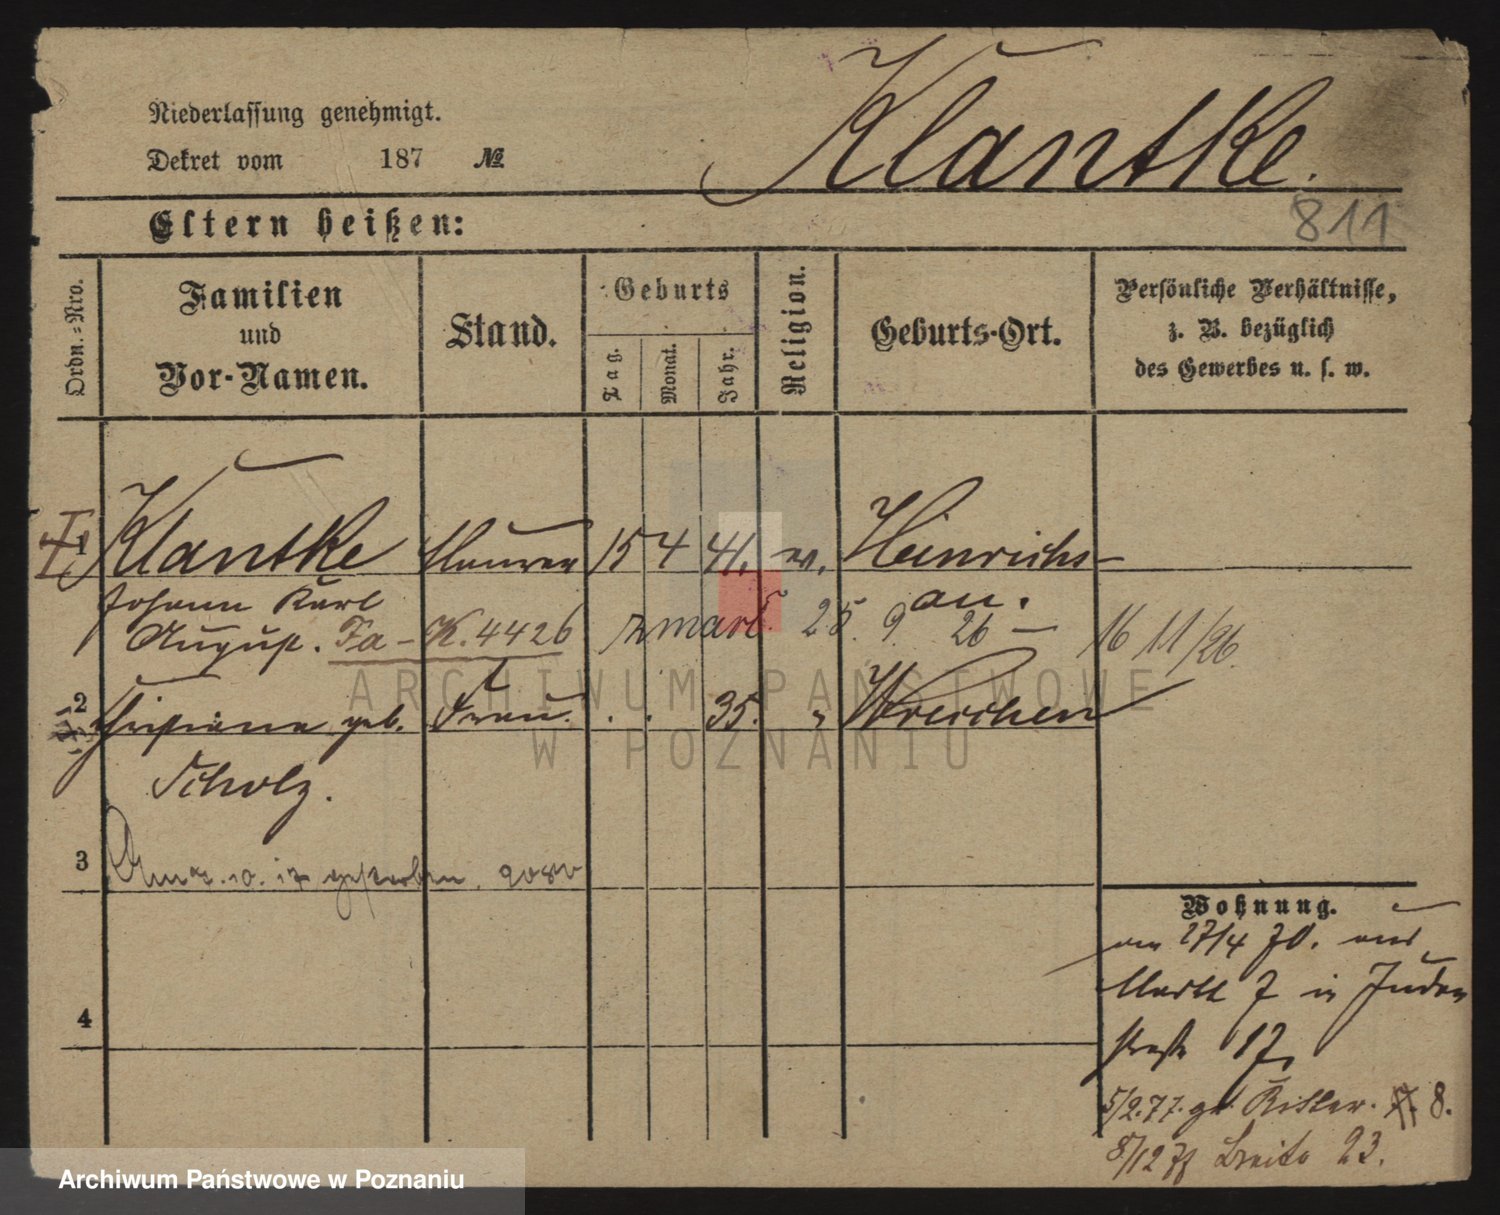 Klantke.
Niederlassung genehmigt.
Dekret vom 187 №
811
Eltern heißen:
Ordn.=Nro.
Familien
und
Vor-Namen.
Stand.
Geburts
Tag.
Monat.
Jahr.
Religion.
Geburts-Ort.
Persönliche Verhältnisse,
z. B. bezüglich
des Gewerbes u. s. w.
1 Klantke Maurer 15 4 41. ev. Heinrichs-
Johann Karl au.
August. Fa-K. 4426 25. 9 26 — 16 11/26.
2 Christiane geb. Frau. . . 35. „ Wreschen
Scholz.
3 gestorben.
4
Wohnung.
am 27/4 70. aus
Markt 7 in Juden
straße 17,
5/2.77. gr. Ritter. 8.
8/12 Breite 23.
ARCHIWUM PAŃSTWOWE
W POZNANIU
Archiwum Państwowe w Poznaniu